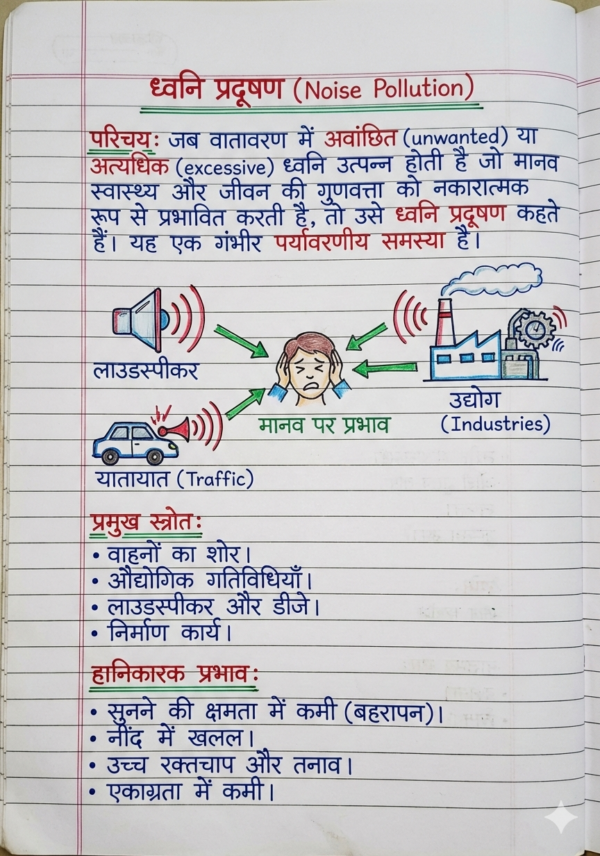 ध्वनि प्रदूषण (Noise Pollution)
परिचय: जब वातावरण में अवांछित (unwanted) या
अत्यधिक (excessive) ध्वनि उत्पन्न होती है जो मानव
स्वास्थ्य और जीवन की गुणवत्ता को नकारात्मक
रूप से प्रभावित करती है, तो उसे ध्वनि प्रदूषण कहते
हैं। यह एक गंभीर पर्यावरणीय समस्या है।
लाउडस्पीकर
मानव पर प्रभाव
उद्योग
(Industries)
यातायात (Traffic)
प्रमुख स्त्रोत:
• वाहनों का शोर।
• औद्योगिक गतिविधियाँ।
• लाउडस्पीकर और डीजे।
• निर्माण कार्य।
हानिकारक प्रभाव:
• सुनने की क्षमता में कमी (बहरापन)।
• नींद में खलल।
• उच्च रक्तचाप और तनाव।
• एकाग्रता में कमी।